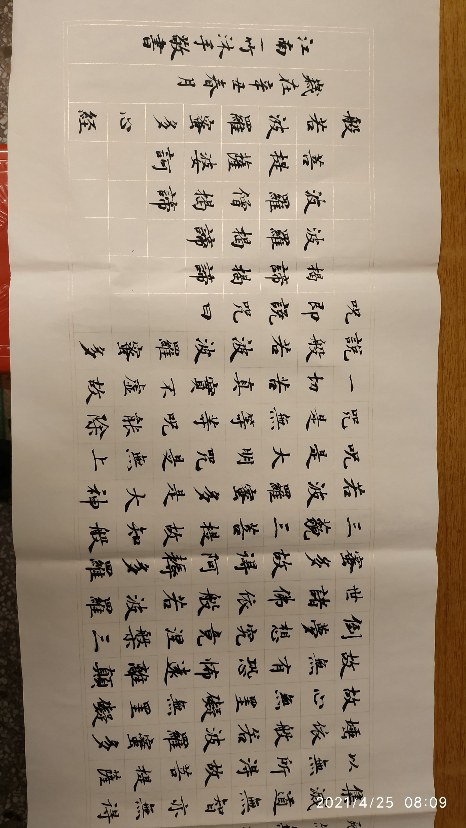 集滅道無智亦無得
以無所得故菩提薩
埵依般若波羅蜜多
故心無罣礙無罣礙
故無有恐怖遠離顛
倒夢想究竟涅槃三
世諸佛依般若波羅
蜜多故得阿耨多羅
三藐三菩提故知般
若波羅蜜多是大神
咒是大明咒是無上
咒是無等等咒能除
一切苦真實不虛故
說般若波羅蜜多
咒即說咒曰
揭諦揭諦
波羅揭諦
波羅僧揭諦
菩提薩婆訶
般若波羅蜜多心經
歲在辛丑春月
江南一竹沐手敬書
2021/4/25 08:09